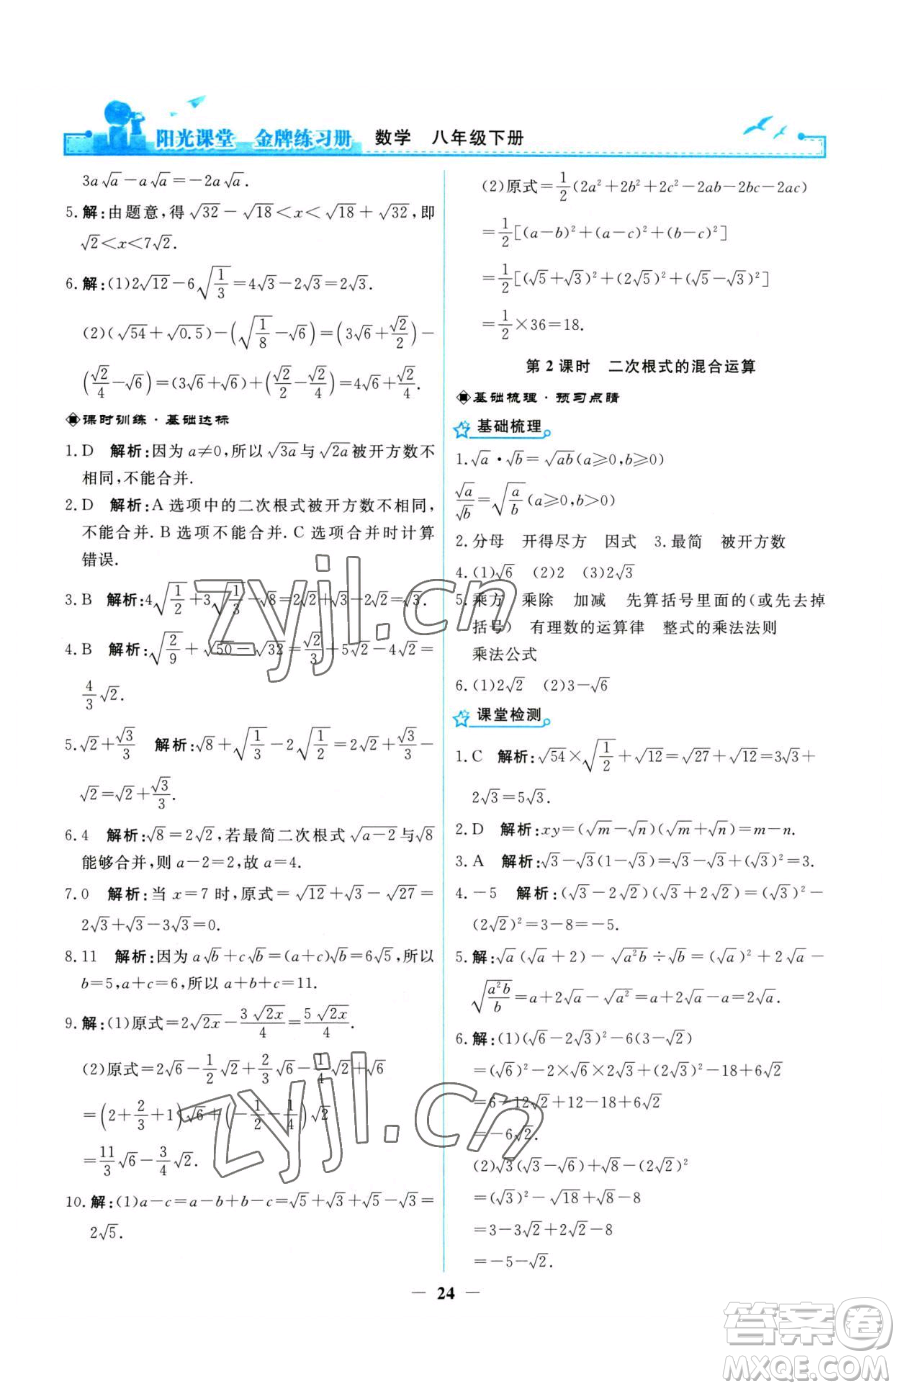 阳光课堂 金牌练习册 数学 八年级下册
3a√a－a√a＝－2a√a.
5. 解:由题意,得√32－√18＜x＜√18＋√32,即
√2＜x＜7√2.
6. 解:(1)2√12－6√(1/3)＝4√3－2√3＝2√3.
(2)(√54＋√0.5)－(√(1/8)－√6)＝(3√6＋√2/2)－
(√2/4－√6)＝(3√6＋√6)＋(√2/2－√2/4)＝4√6＋√2/4.
课时训练·基础达标
1. D 解析:因为a≠0,所以√3a与√2a被开方数不
相同,不能合并.
2. D 解析:A选项中的二次根式被开方数不相同,
不能合并.B选项不能合并.C选项合并时计算
错误.
3. B 解析:4√(1/2)＋3√(1/3)－√8＝2√2＋√3－2√2＝√3.
4. B 解析:√(2/9)＋√50－√32＝√2/3＋5√2－4√2＝
4/3√2.
5. √2＋√3/3 解析:√8＋√(1/3)－2√(1/2)＝2√2＋√3/3－
√2＝√2＋√3/3.
6. 4 解析:√8＝2√2,若最简二次根式√(a－2)与√8
能够合并,则a－2＝2,故a＝4.
7. 0 解析:当x＝7时,原式＝√12＋√3－√27＝
2√3＋√3－3√3＝0.
8. 11 解析:因为a√b＋c√b＝(a＋c)√b＝6√5,所以
b＝5,a＋c＝6,所以a＋b＋c＝11.
9. 解:(1)原式＝2√2x－3√2x/4＝5√2x/4.
(2)原式＝2√6－1/2√2＋2/3√6－1/4√2＋√6
＝(2＋2/3＋1)√6＋(－1/2－1/4)√2
＝11/3√6－3/4√2.
10. 解:(1)a－c＝a－b＋b－c＝√5＋√3＋√5－√3＝
2√5.
(2)原式＝1/2(2a²＋2b²＋2c²－2ab－2bc－2ac)
＝1/2[(a－b)²＋(a－c)²＋(b－c)²]
＝1/2[(√5＋√3)²＋(2√5)²＋(√5－√3)²]
＝1/2×36＝18.
第2课时 二次根式的混合运算
基础梳理·预习点睛
基础梳理
1. √a·√b＝√ab(a≥0,b≥0)
√a/√b＝√(a/b)(a≥0,b＞0)
2. 分母 开得尽方 因式 3. 最简 被开方数
4. (1)√6 (2)2 (3)2√3
5. 乘方 乘除 加减 先算括号里面的(或先去掉
括号) 有理数的运算律 整式的乘法法则
乘法公式
6. (1)2√2 (2)3－√6
课堂检测
1. C 解析:√54×√(1/2)＋√12＝√27＋√12＝3√3＋
2√3＝5√3.
2. D 解析:xy＝(√m－√n)(√m＋√n)＝m－n.
3. A 解析:√3－√3(1－√3)＝√3－√3＋(√3)²＝3.
4. －5 解析:(√3－2√2)(√3＋2√2)＝(√3)²－
(2√2)²＝3－8＝－5.
5. 解:√a(√a＋2)－√a²b÷√b＝(√a)²＋2√a－
√(a²b/b)＝a＋2√a－√a²＝a＋2√a－a＝2√a.
6. 解:(1)(√6－2√3)²－6(3－√2)
＝(√6)²－2×√6×2√3＋(2√3)²－18＋6√2
＝6－12√2＋12－18＋6√2
＝－6√2.
(2)√3(√3－√6)－|－2√2|²
＝(√3)²－√18＋√8－8
＝3－3√2＋2√2－8
＝－5－√2.
24
zyjl.cn
zyjl.cn
答案圈
MXQE.COM